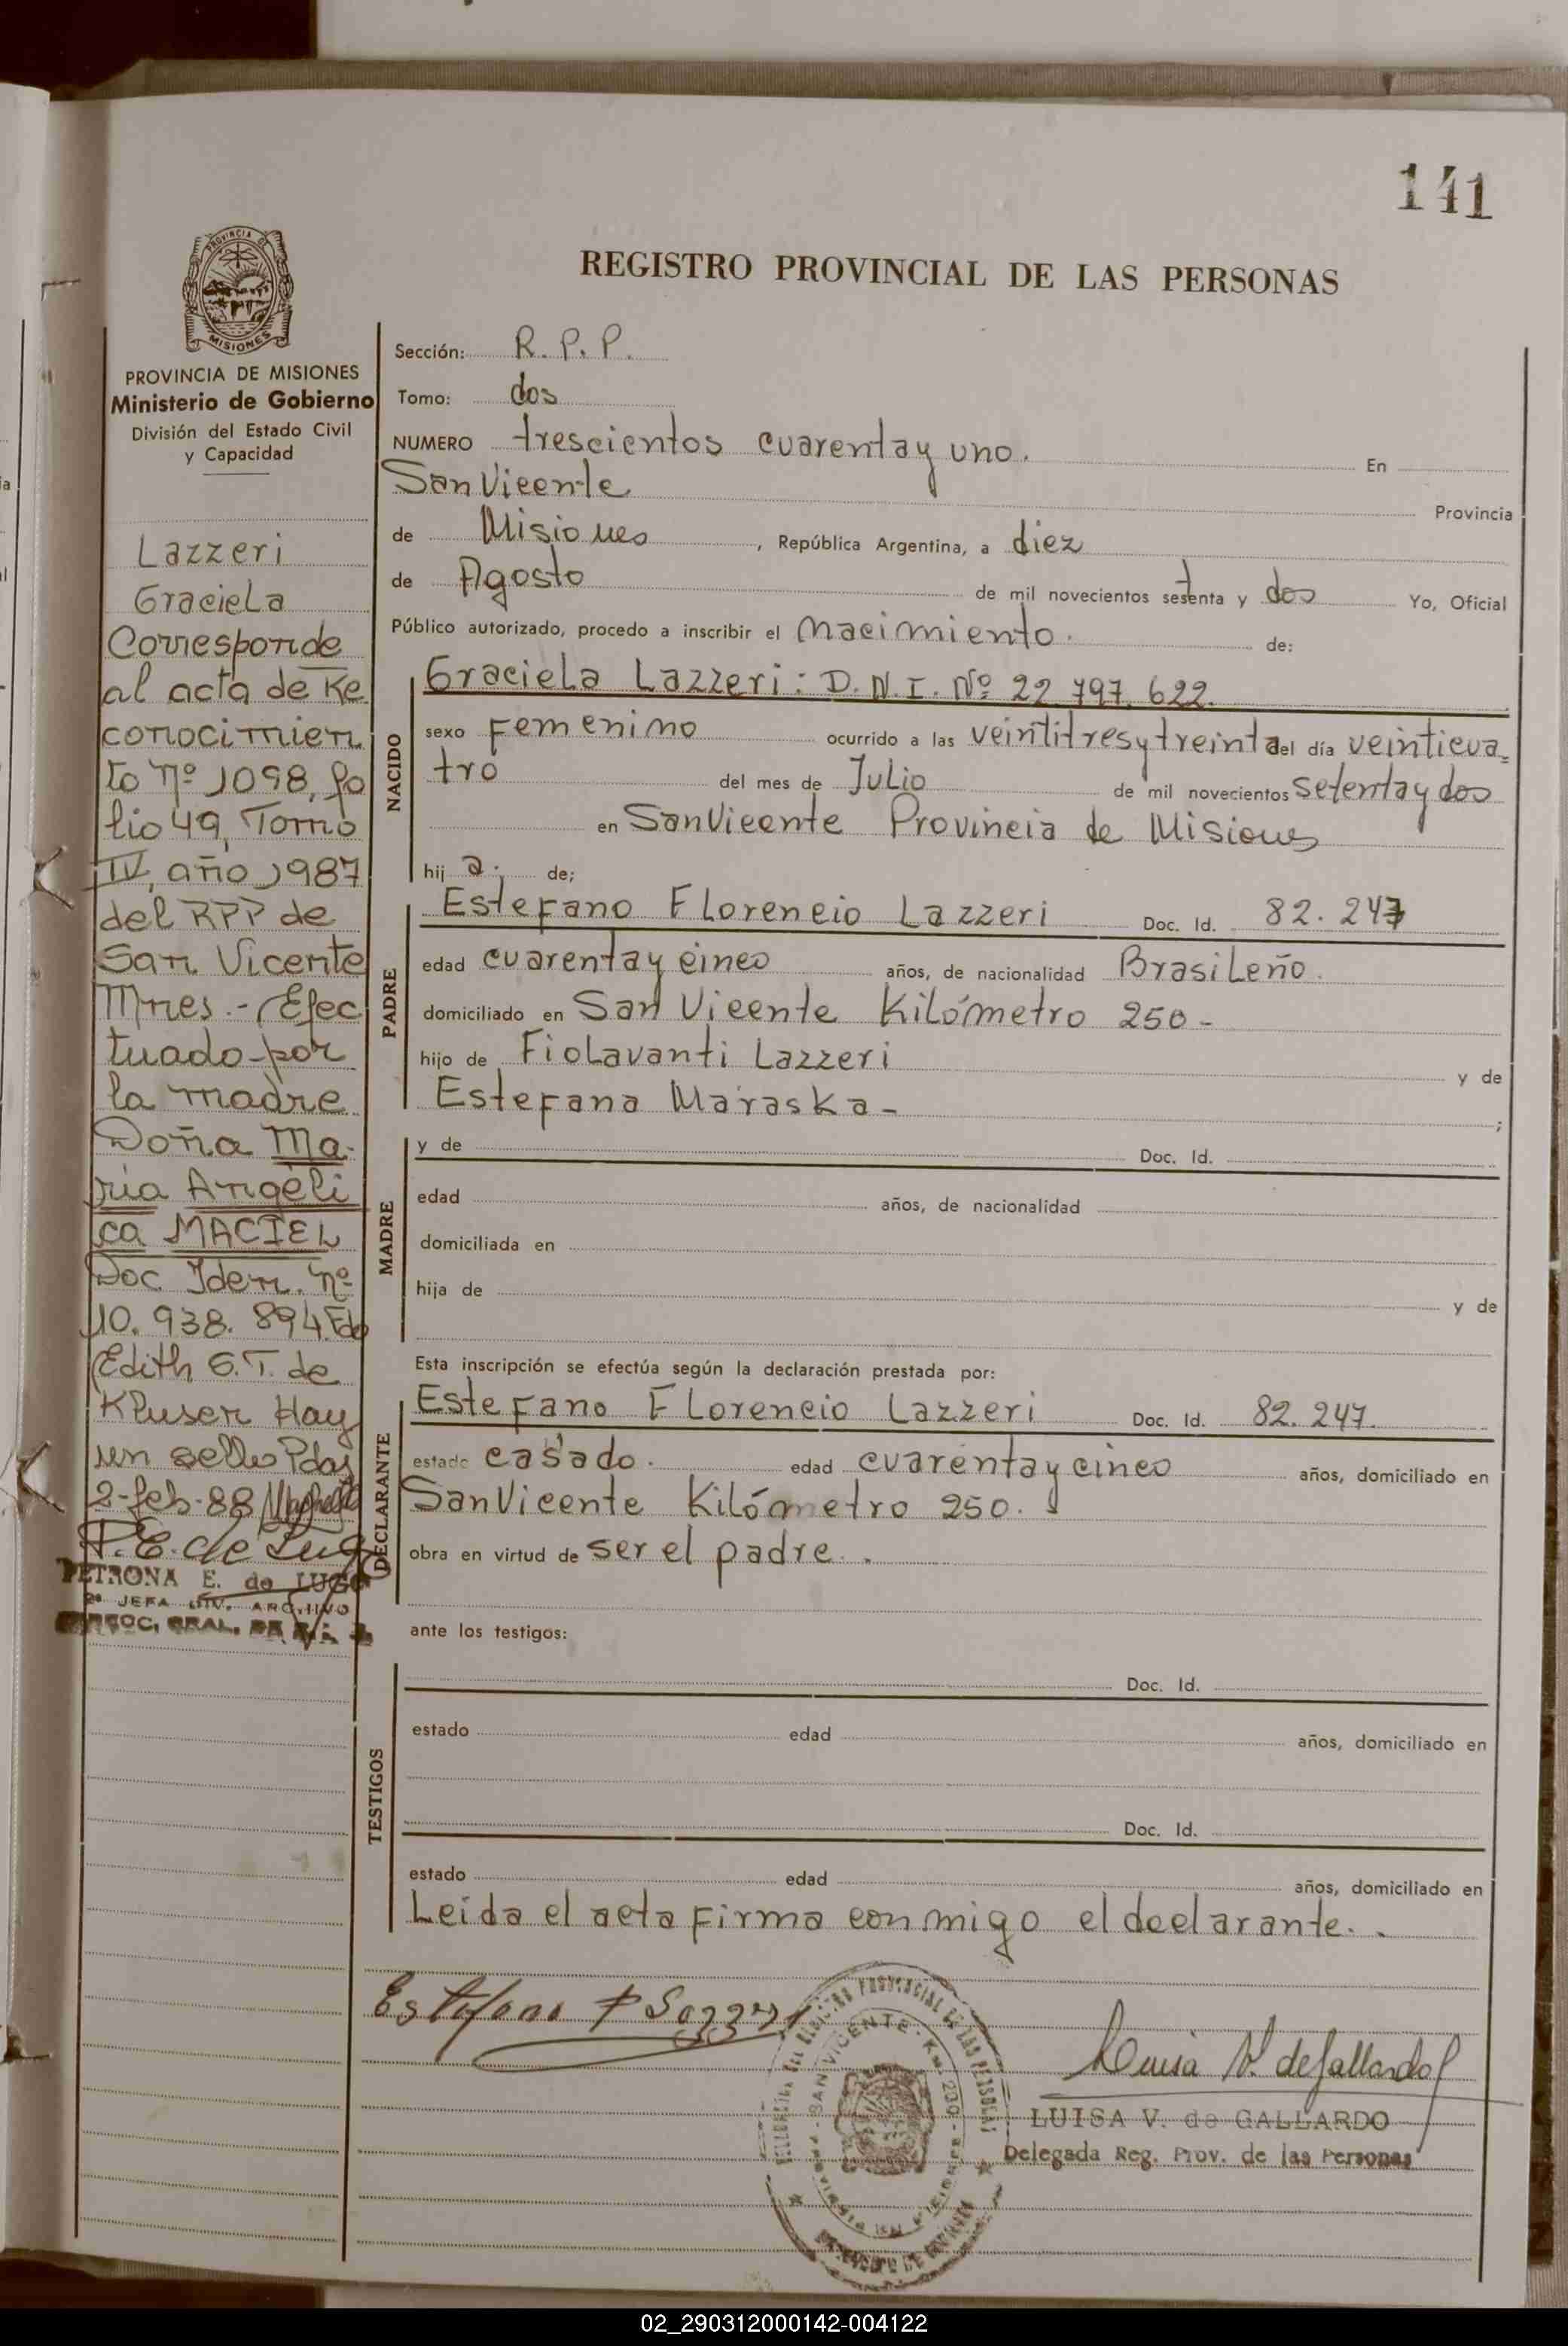 141
PROVINCIA DE
MISIONES
PROVINCIA DE MISIONES
Ministerio de Gobierno
División del Estado Civil
y Capacidad
Lazzeri
Graciela
Corresponde
al acta de Re
conocimien
to nº 1098, fo
lio 49, Tomo
IV, año 1987
del RPP de
San Vicente
Mnes.- Efec
tuado por
la madre
Doña Ma-
ria Angéli
ca MACIEL
Doc Iden. nº
10.938.894 Fdo
Edith G.T. de
Kluser Hay
un sello Pdas
2-feb-88
P.E. de Lugo
PETRONA E. de LUGO
2ª JEFA DIV. ARCHIVO
GRAL.
REGISTRO PROVINCIAL DE LAS PERSONAS
Sección: R.P.P.
Tomo: dos
NUMERO trescientos cuarenta y uno. En
San Vicente
Provincia
de Misiones, República Argentina, a diez
de Agosto de mil novecientos setenta y dos Yo, Oficial
Público autorizado, procedo a inscribir el nacimiento. de:
NACIDO
Graciela Lazzeri: D.N.I. Nº 22.797.622.
sexo Femenino ocurrido a las veintitres y treinta del día veinticua=
tro del mes de Julio de mil novecientos setenta y dos
en San Vicente Provincia de Misiones
hij a. de;
PADRE
Estefano Florencio Lazzeri Doc. Id. 82.247
edad cuarenta y cinco años, de nacionalidad Brasileño.
domiciliado en San Vicente Kilómetro 250-
hijo de Fiolavanti Lazzeri y de
Estefana Maraska- ;
MADRE
y de Doc. Id.
edad años, de nacionalidad
domiciliada en
hija de y de
Esta inscripción se efectúa según la declaración prestada por:
DECLARANTE
Estefano Florencio Lazzeri Doc. Id. 82.247.
estado casado. edad cuarenta y cinco años, domiciliado en
San Vicente Kilómetro 250.
obra en virtud de ser el padre.
ante los testigos:
TESTIGOS
Doc. Id.
estado edad años, domiciliado en
Doc. Id.
estado edad años, domiciliado en
Leida el acta firma conmigo el declarante.
Estefano F Lazzeri
Luisa V. de Gallardo
LUISA V. de GALLARDO
Delegada Reg. Prov. de las Personas
DEL REGISTRO PROVINCIAL DE LAS PERSONAS
SAN VICENTE - Km. 250
02_290312000142-004122